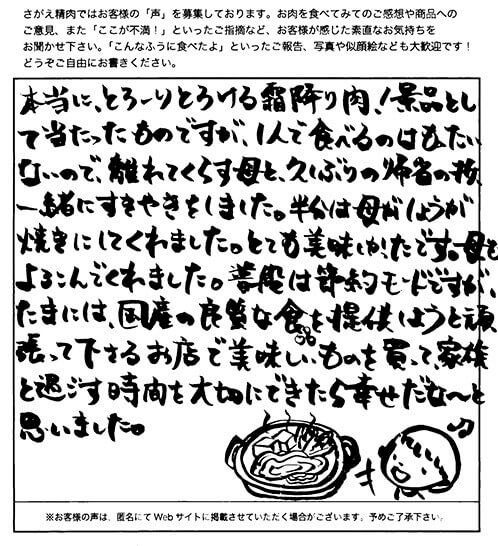 さがえ精肉ではお客様の「声」を募集しております。お肉を食べてみてのご感想や商品への
ご意見、また「ここが不満！」といったご指摘など、お客様が感じた素直なお気持ちを
お聞かせ下さい。「こんなふうに食べたよ」といったご報告、写真や似顔絵なども大歓迎です！
どうぞご自由にお書きください。
本当に、とろーりとろける霜降り肉！景品とし
て当たったものですが、1人で食べるのはもったい
ないので、離れてくらす母と、久しぶりの帰省の折、
一緒にすきやきをしました。半分は母がしょうが
焼きにしてくれました。とても美味しかったです。母も
よろこんでくれました。普段は節約モードですが、
たまには、国産の良質な食を提供しようと頑
張って下さるお店で美味しいものを買って、家族
と過ごす時間を大切にできたら幸せだな〜と
思いました。
※お客様の声は、匿名にてWebサイトに掲載させていただく場合がございます。予めご了承下さい。